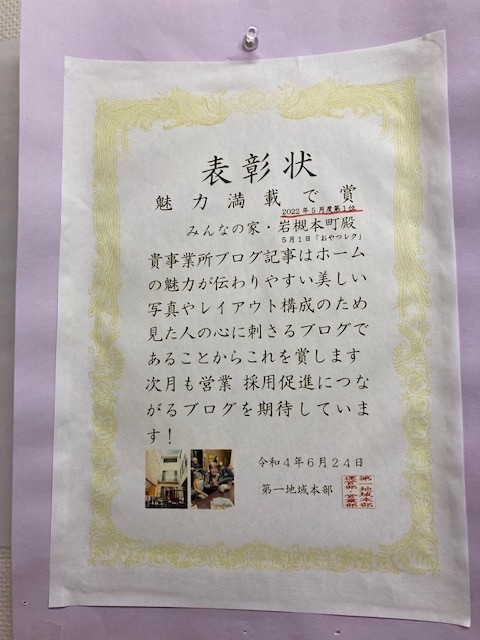 表彰状
魅力満載で賞
2022年5月度第1位
みんなの家・岩槻本町殿
5月1日「おやつレク」
貴事業所ブログ記事はホーム
の魅力が伝わりやすい美しい
写真やレイアウト構成のため
見た人の心に刺さるブログで
あることからこれを賞します
次月も営業 採用促進につな
がるブログを期待していま
す!
令和4年6月24日
第一地域本部
第一地域本部
運営部 営業部